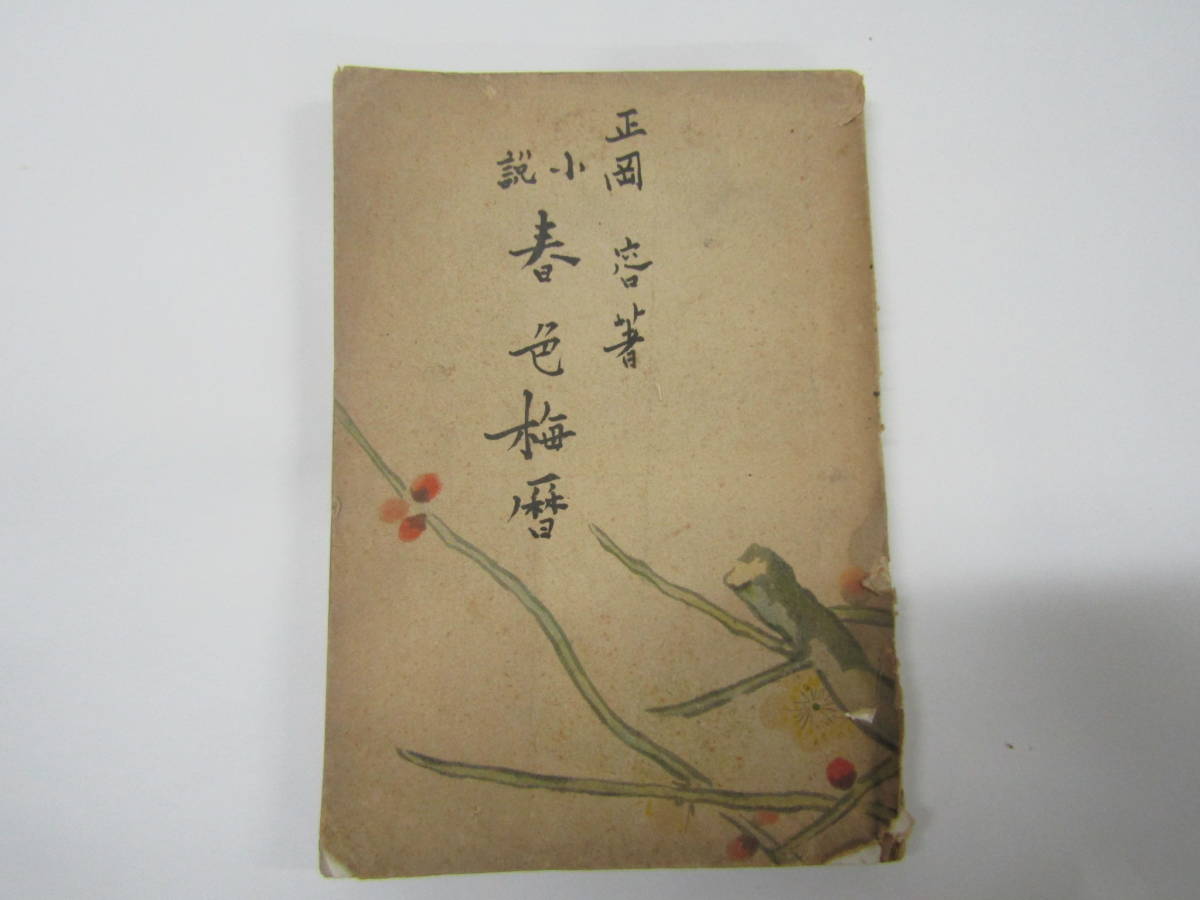 正岡容著
小説 春色梅暦